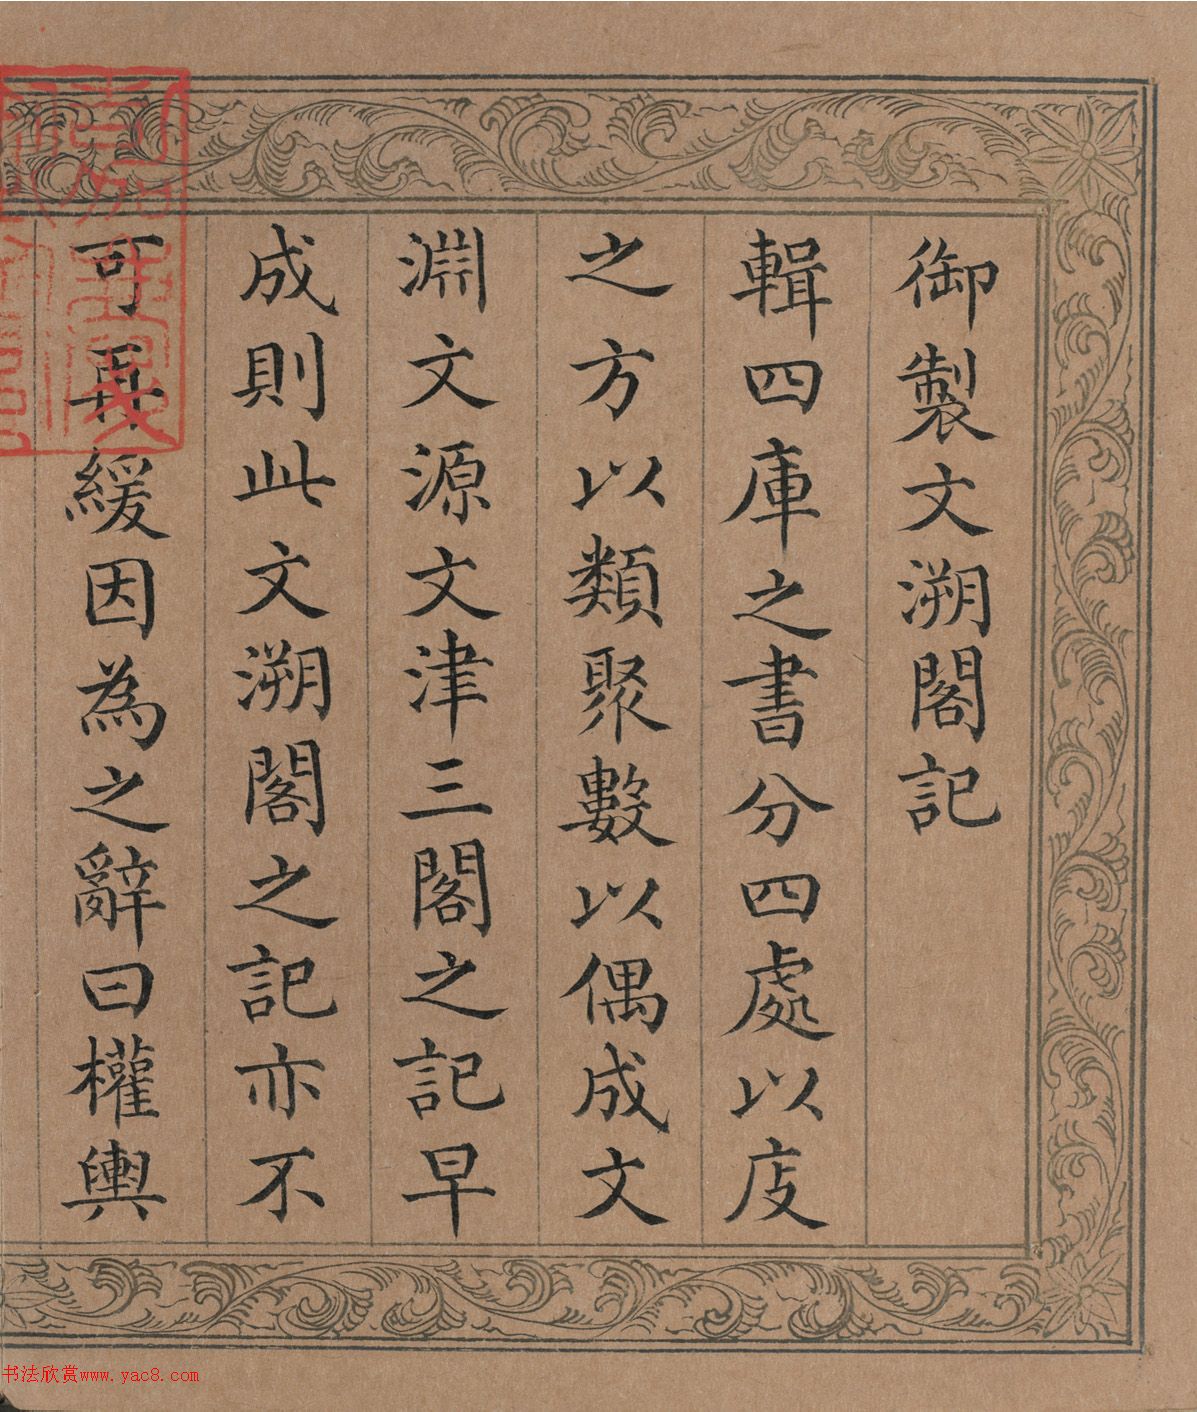 御製文溯閣記
輯四庫之書分四處以庋
之方以類聚數以偶成文
淵文源文津三閣之記早
成則此文溯閣之記亦不
可再緩因為之辭曰權輿
书法欣赏www.yac8.com